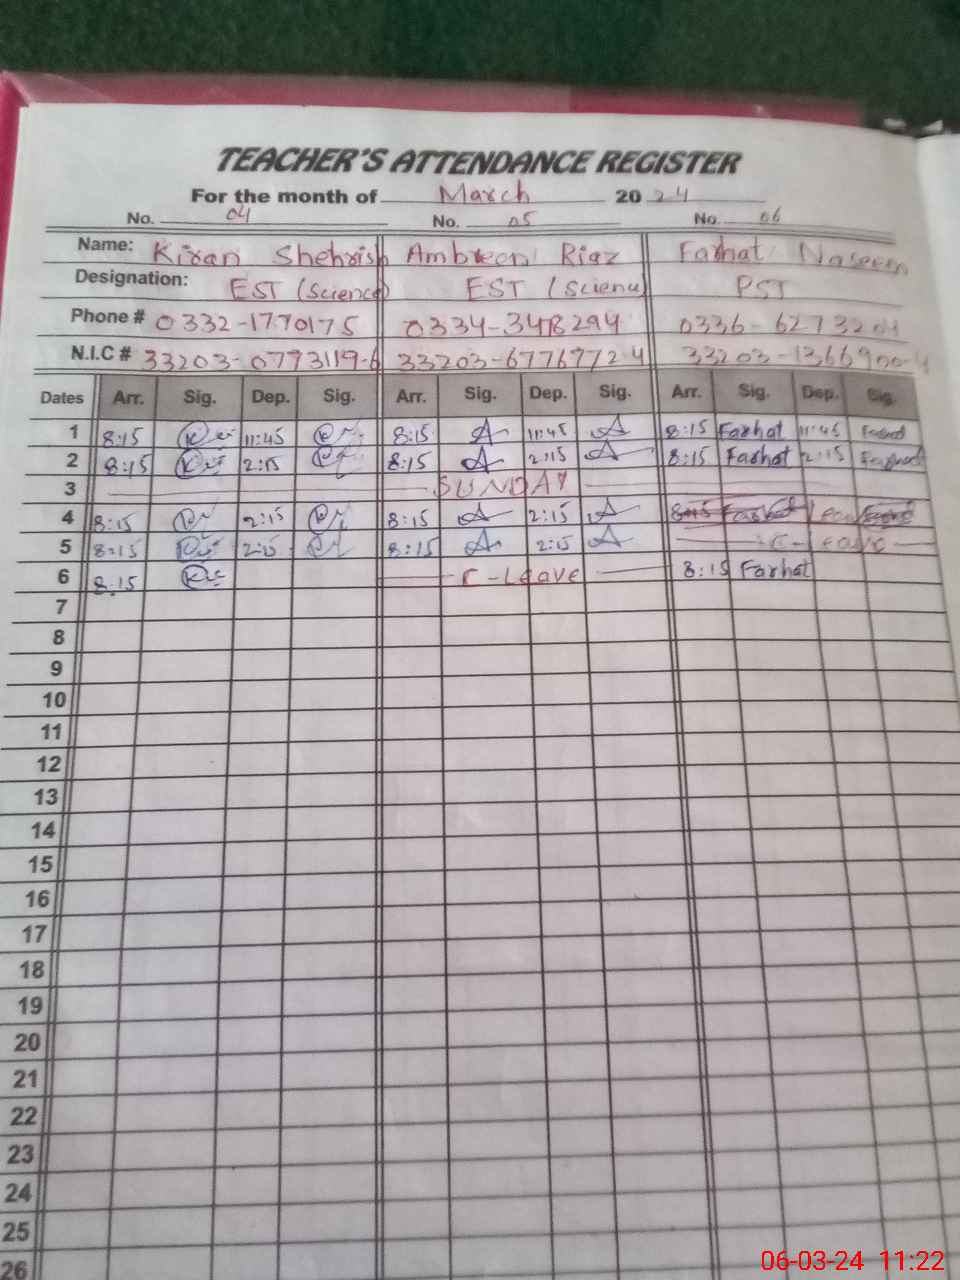 TEACHER'S ATTENDANCE REGISTER
For the month of March 2024
No. 04 No. 05 No. 06
Name: Kiran Shehrish Ambreen Riaz Farhat Naseem
Designation: EST (Science) EST (Science) PST
Phone # 0332-1770175 0334-3478294 0336-6273204
N.I.C # 33203-0773119-6 33203-67769772-4 33203-1366900-4
Dates Arr. Sig. Dep. Sig. Arr. Sig. Dep. Sig. Arr. Sig. Dep. Sig.
1 8:15 11:45 8:15 A 11:45 A 8:15 Farhat 11:45 Farhat
2 8:15 2:15 8:15 A 2:15 A 8:15 Farhat 2:15 Farhat
3 SUNDAY
4 8:15 2:15 8:15 A 2:15 A 8:15 Farhat
5 8:15 2:15 8:15 A 2:15 A C-Leave
6 8:15 C-Leave 8:15 Farhat
7
8
9
10
11
12
13
14
15
16
17
18
19
20
21
22
23
24
25
26
06-03-24 11:22